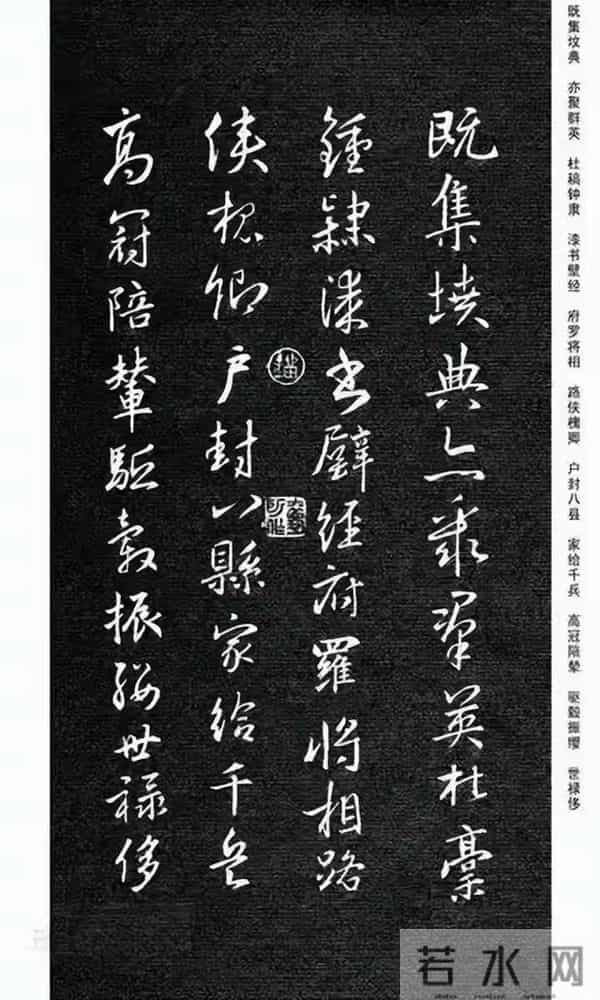 既集坟典 亦聚群英 杜稿钟隶 漆书壁经 府罗将相 路侠槐卿 户封八县 家给千兵 高冠陪辇 驱毂振缨 世禄侈
既集墳典亦聚羣英杜稾
鍾隸漆書壁經府羅將相路
俠槐卿户封八縣家給千兵
高冠陪輦驅轂振纓世禄侈
若水网